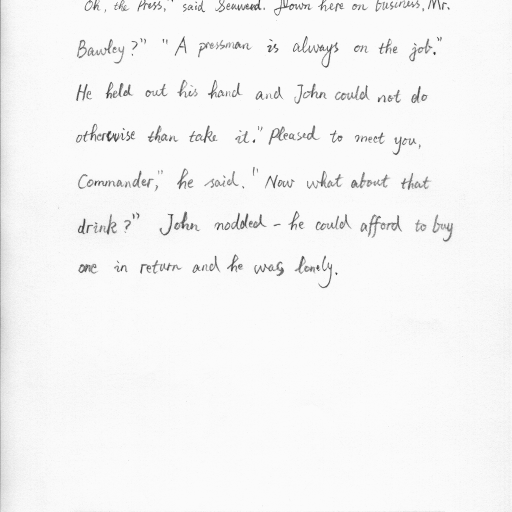 "Oh, the Press," said Seaweed. "Down here on business, Mr.
Bawley?" "A pressman is always on the job."
He held out his hand and John could not do
otherwise than take it. "Pleased to meet you,
Commander," he said. "Now what about that
drink?" John nodded - he could afford to buy
one in return and he was lonely.